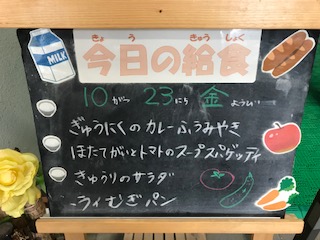 MILK
きょう きゅうしょく
今日の給食
10がつ 23にち 金ようび
ぎゅうにくのカレーふうみやき
ほたてがいとトマトのスープスパゲッティ
きゅうりのサラダ
ライむぎパン